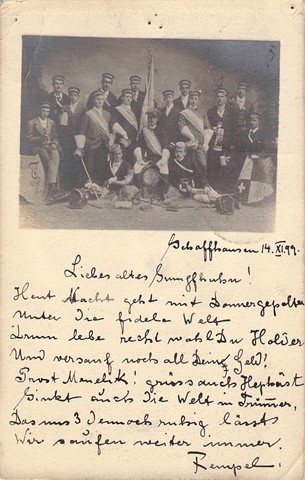 Schaffhausen 14. XI. 99.
Liebes altes Sumpfhuhn!
Heut Nacht geht mit Donnergepolter
Unter die fidele Welt
Drum lebe recht wohl Du Holder
Und versauf noch all Dein Geld!
Prost Menelik! grüss auch Hephäst
Sinkt auch die Welt in Trümmer,
Das uns 3 dennoch ruhig lässt
Wir saufen weiter immer.
Rempel.